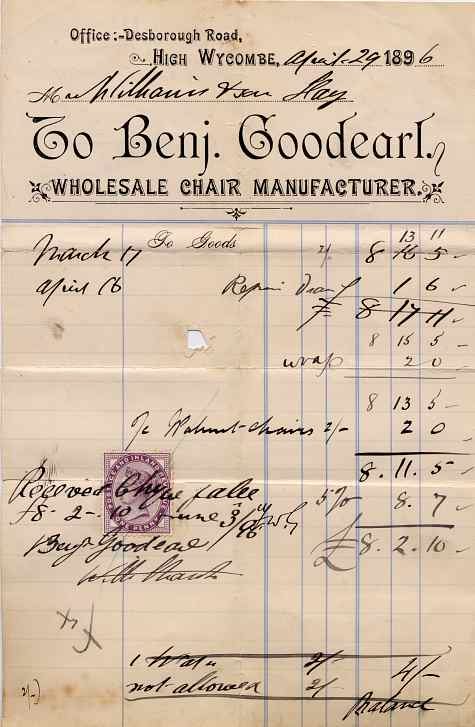 Office:-Desborough Road,
High Wycombe, April 29 1896
M Williams & son Hay
To Benj. Goodearl.
Wholesale Chair Manufacturer.
13 11
March 17 To Goods 2/- 8 16 5
April 16 Repair 1 6
£ 8 17 11
8 15 5
wrap 2 0
8 13 5
Walnut chairs 2/- 2 0
8. 11. 5
Received Cheque 5% 8. 7
£8 - 2 - 10 June 3 /96
£ 8. 2. 10
Benj Goodearl
INLAND
ONE PENNY
2/- 4/-
not allowed 2/-
Balance
2/-)